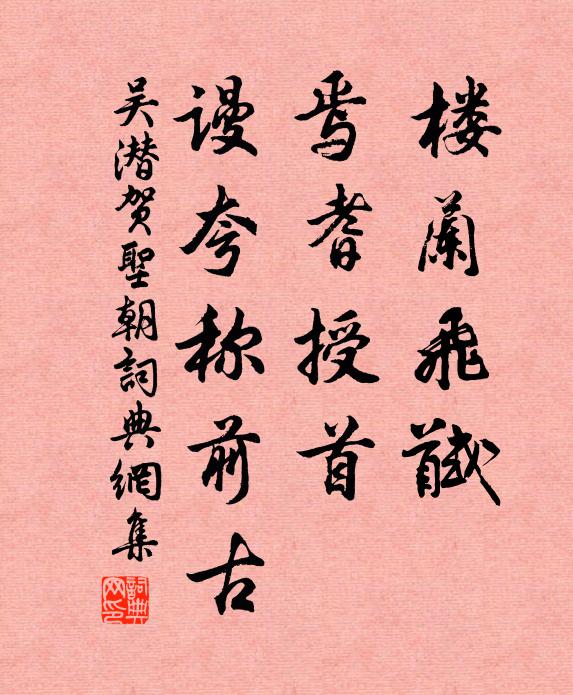 楼蘭飛馘
焉耆授首
谩夸称前古
吴潜贺聖朝詞典網集
詞典网印